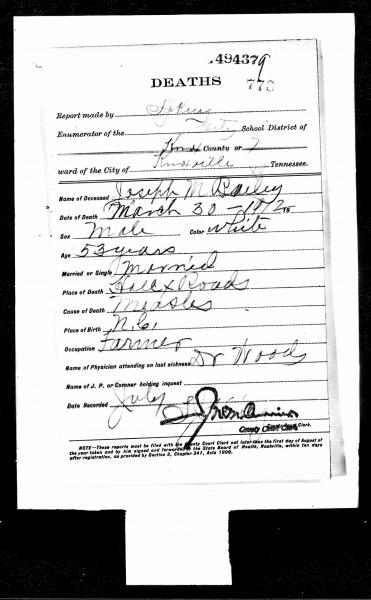 494379
DEATHS
773
Report made by
Enumerator of the School District of
Knox County or 7
ward of the City of Knoxville Tennessee.
Name of Deceased Joseph M. Bailey
Date of Death March 30 - 1912 19
Sex Male Color White
Age 53 years
Married or Single Married
Place of Death Roads
Cause of Death Measles
Place of Birth N.C.
Occupation Farmer
Name of Physician attending on last sickness Dr Woods
Name of J. P. or Coroner holding inquest
Date Recorded July
Clerk.
County Court Clerk
NOTE—These reports must be filed with the County Court Clerk not later than the first day of August of
the year taken and by him signed and forwarded to the State Board of Health, Nashville, within ten days
after registration, as provided by Section 3, Chapter 341, Acts 1909.